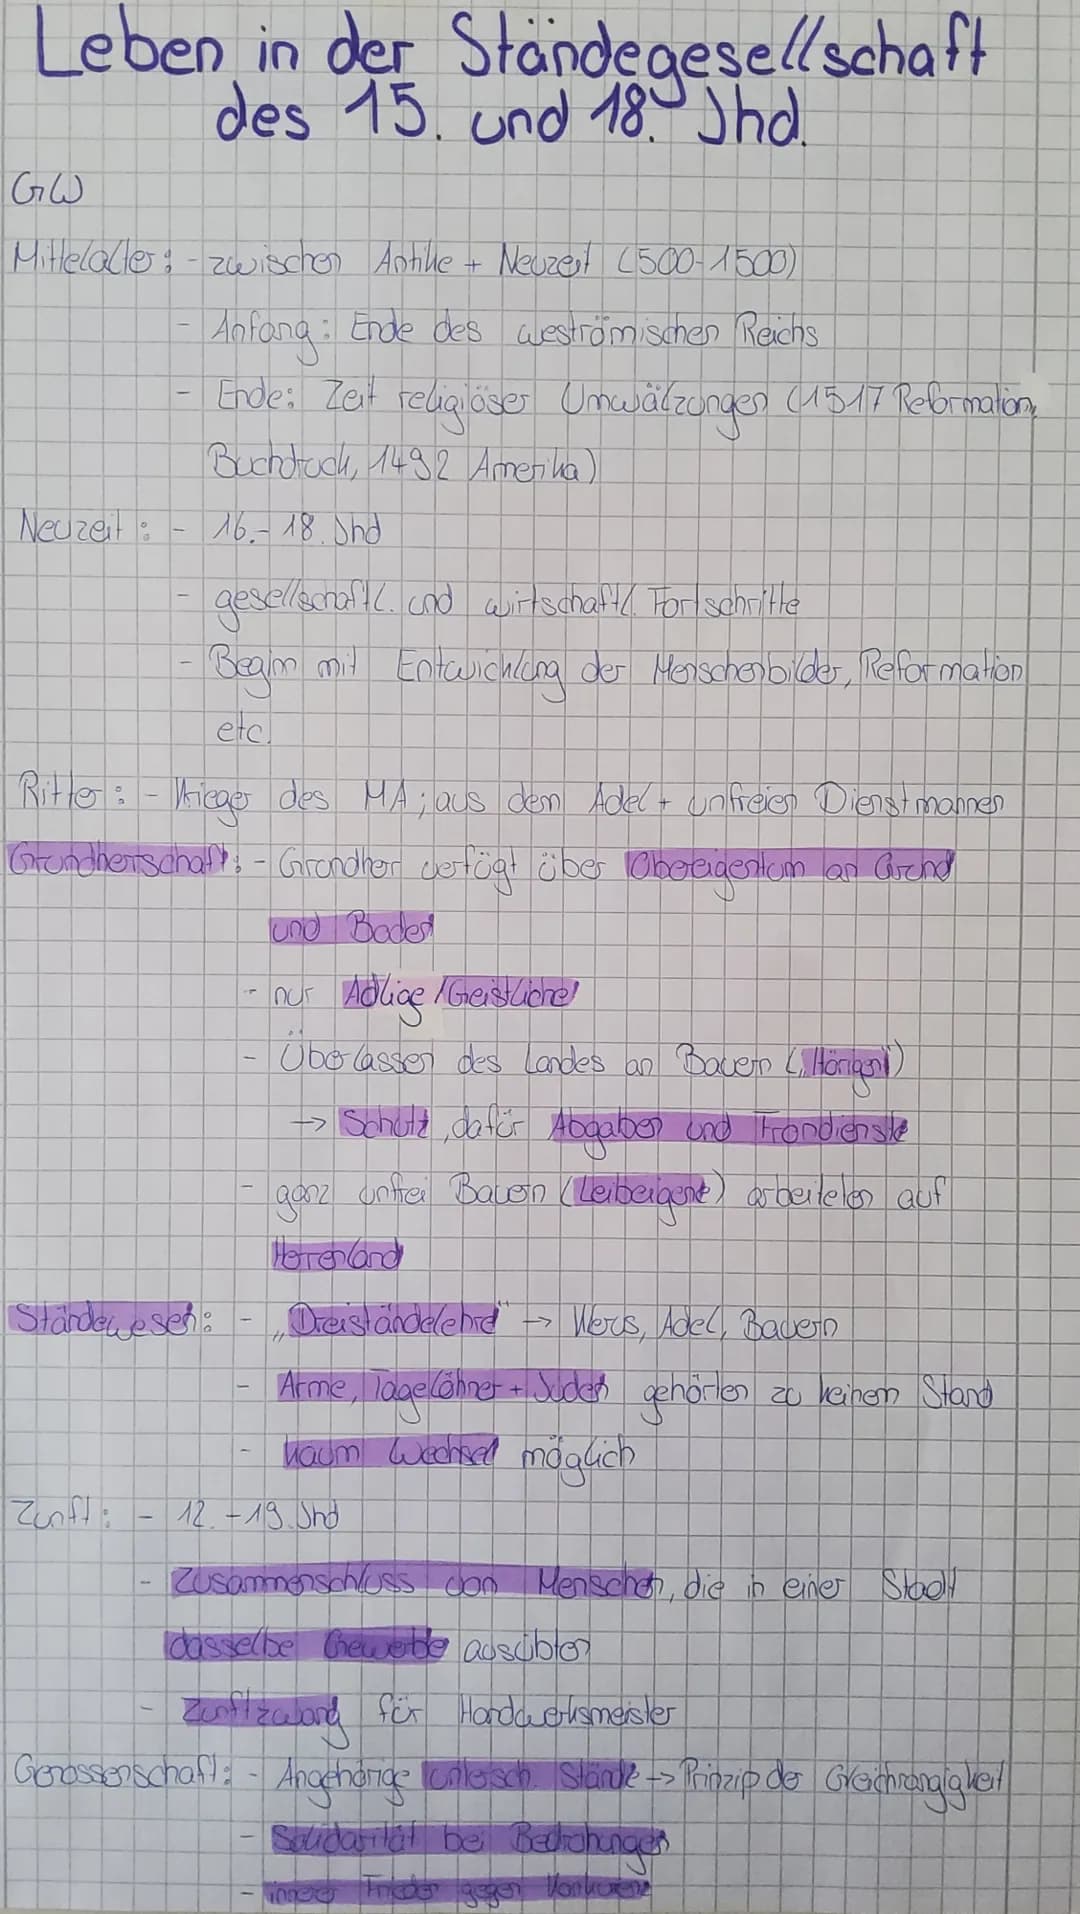 Leben in der Ständegesellschaft
des 15. und 18. Jhd.
GW
Mittelalter: - zwischen Antike + Neuzeit (500-1500)
- Anfang: Ende des weströmischen Reichs
- Ende: Zeit religiöser Umwälzungen (1517 Reformation,
Buchdruck, 1492 Amerika)
Neuzeit: - 16.-18. Jhd
- gesellschaftl. und wirtschaftl. Fortschritte
- Beginn mit Entwicklung der Menschenbilder, Reformation
etc.
Ritter: - Krieger des MA; aus dem Adel + unfreien Dienstmannen
Grundherrschaft: - Grundherr verfügt über Obereigentum an Grund
und Boden
- nur Adlige/Geistliche
- Überlassen des Landes an Bauern („Hörigen")
→ Schutz, dafür Abgaben und Frondienste
- ganz unfrei Bauern (Leibeigene) arbeiteten auf
Herrenland
Ständewesen: - „Dreiständelehre" → Klerus, Adel, Bauern
- Arme, Tagelöhner + Juden gehörten zu keinem Stand
- kaum Wechsel möglich
Zunft: - 12.-19. Jhd
- Zusammenschluss von Menschen, die in einer Stadt
dasselbe Gewerbe ausübten
- Zunftzwang für Handwerksmeister
Genossenschaft: - Angehörige untersch. Stände → Prinzip der Gleichrangigkeit
- Solidarität bei Bedrohungen
- innerer Frieden gegen Konkurrenz